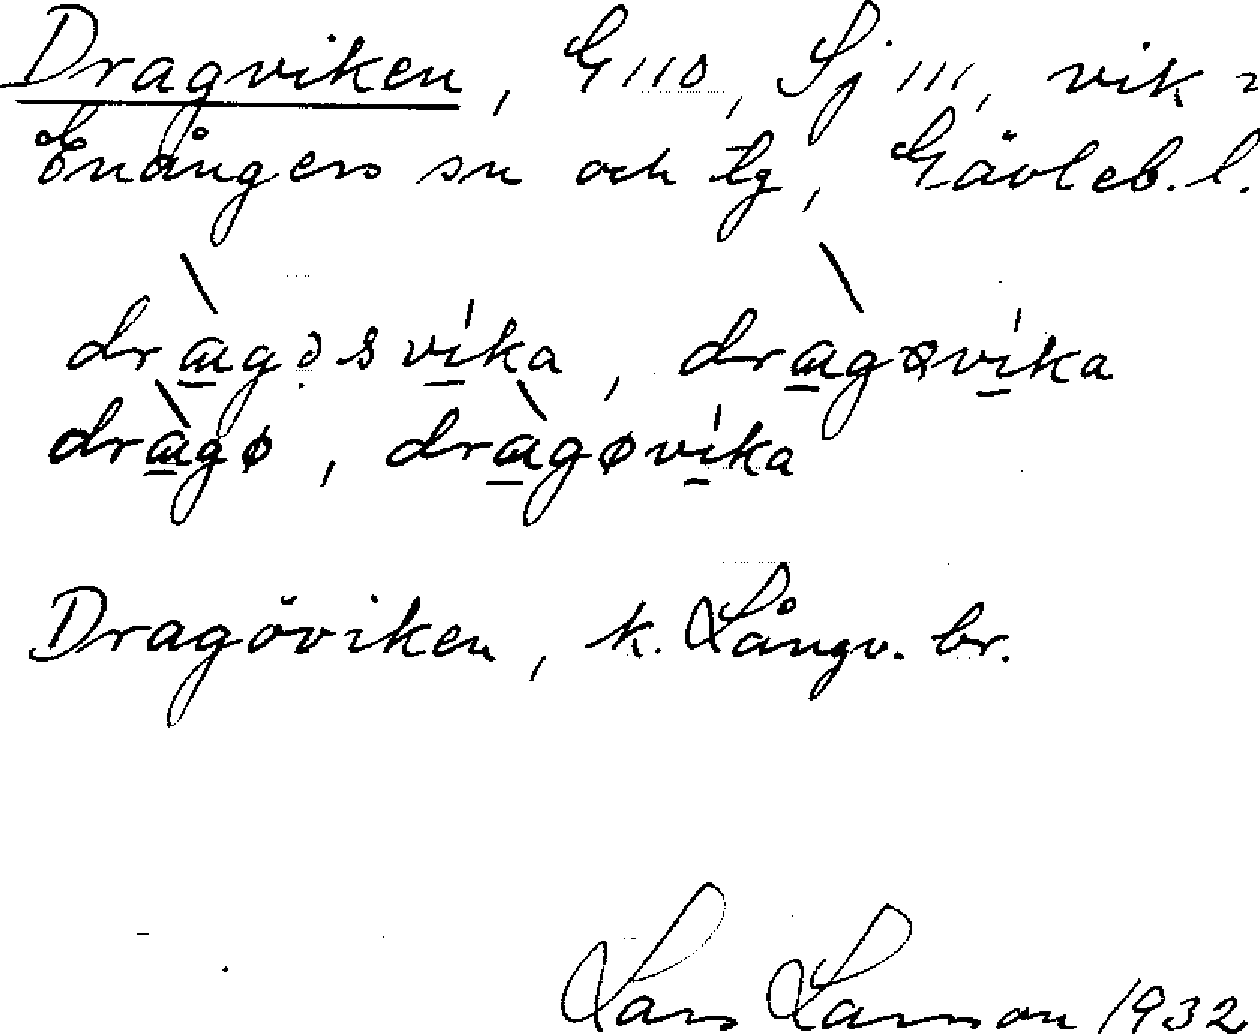 Dragviken, G 110, Sj 111, vik i
Enångers sn och tg, Gävleb. l.
dràgəsvíka, dragøvíka
dràgø, dràgøvíka
Dragöviken, k. Långv. br.
Lars Larsson 1932